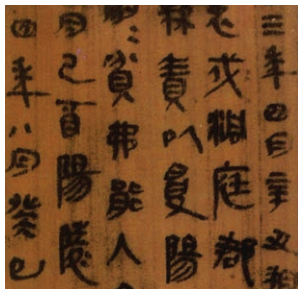 三年四月辛丑朔
戍洞庭郡
責以受陽
貧弗能入
月己酉陽陵
四年八月癸巳